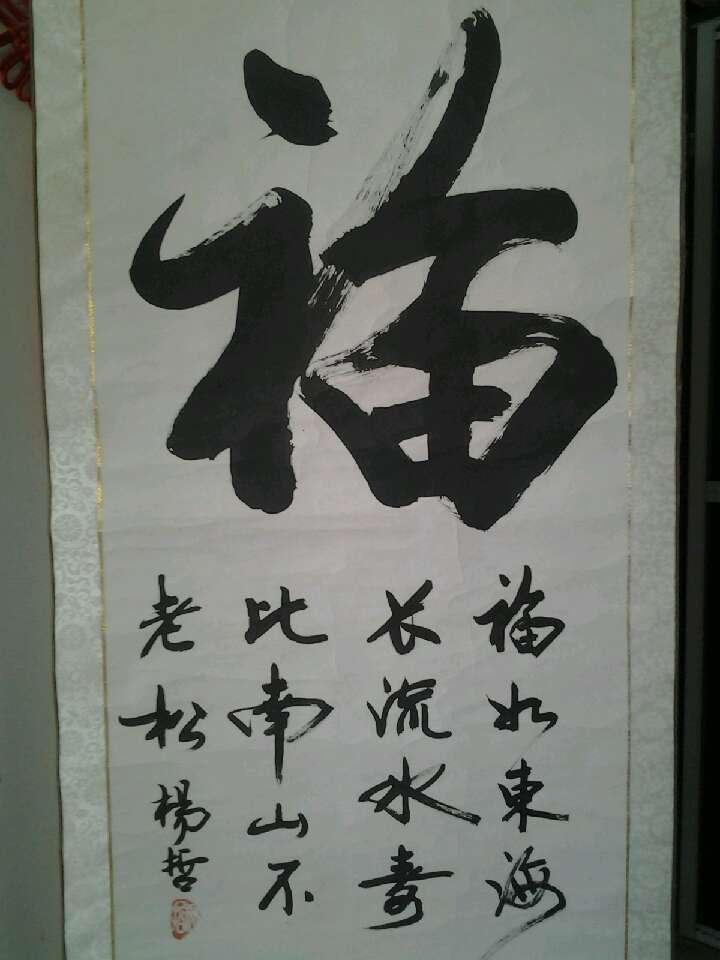 福
福如東海
长流水寿
比南山不
老松 楊哲